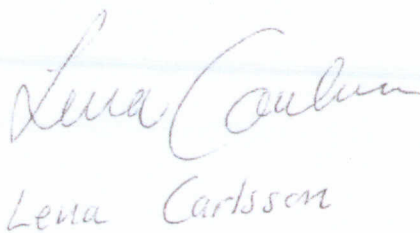 Lena Carlsson
Lena Carlsson